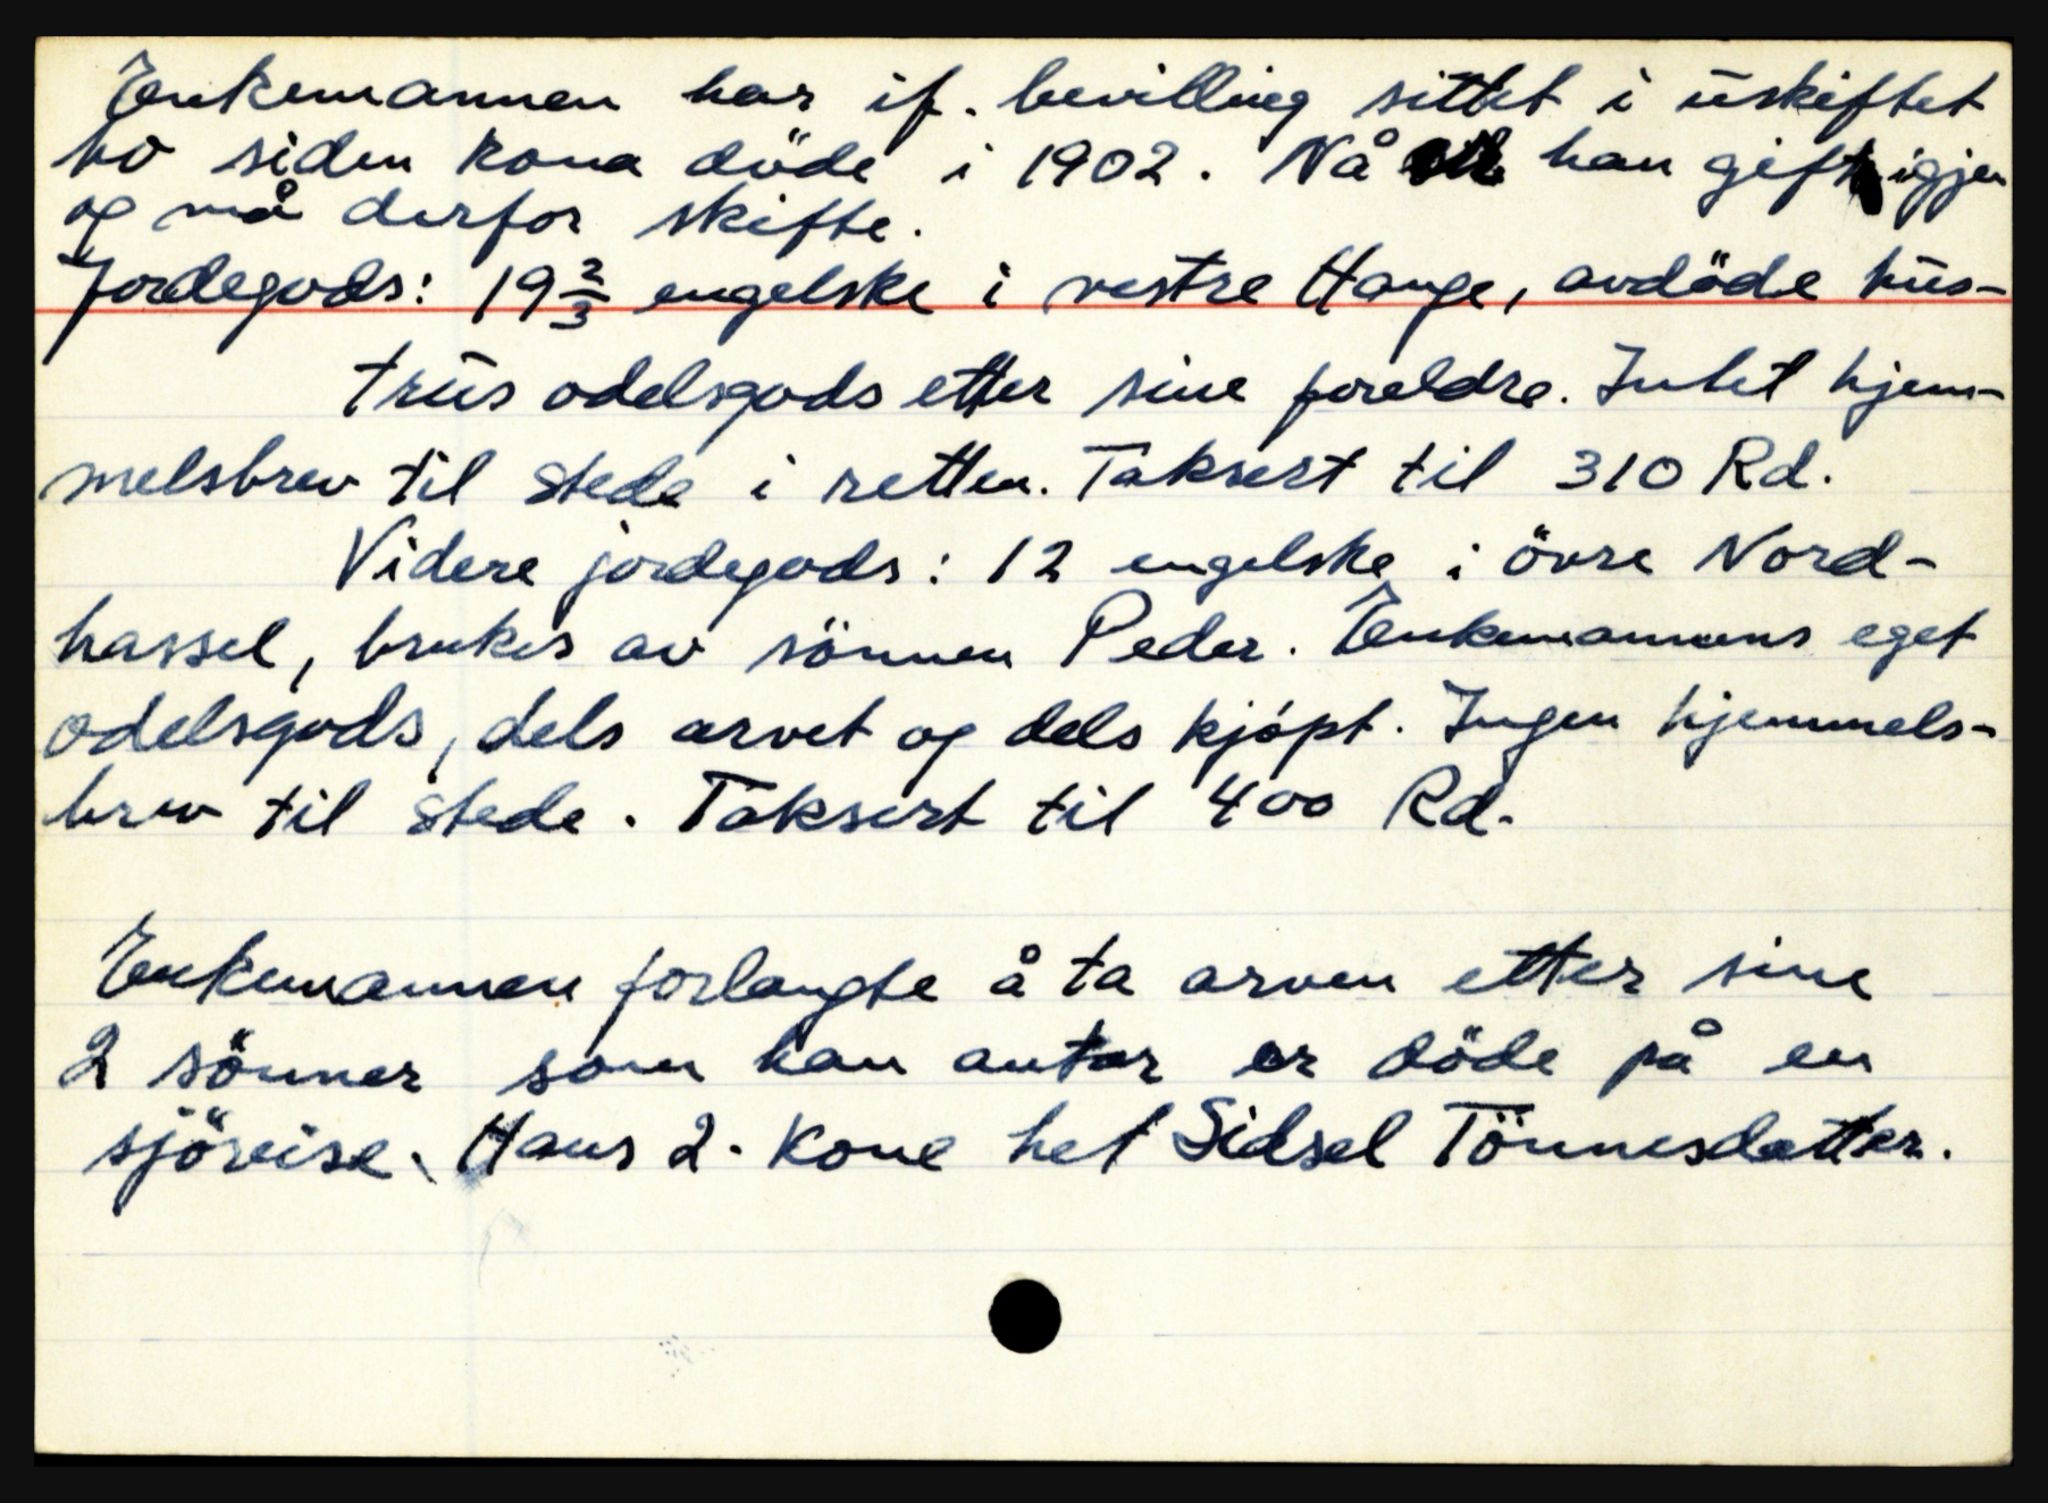 Enkemannen har if. bevilling sittet i uskiftet
bo siden kona döde i 1902. Nå er han gift igjen
og må derfor skifte.
Jordegods: 19 2/3 engelske i vestre Hauge, avdöde hus-
trus odelsgods etter sine foreldre. Intet hjem-
melsbrev til stede i retten. Taksert til 310 Rd.
Videre jordegods: 12 engelske i övre Nord-
hassel, brukes av sönnen Peder. Enkemannens eget
odelsgods, dels arvet og dels kjöpt. Ingen hjemmels-
brev til stede. Taksert til 400 Rd.
Enkemannen forlangte å ta arven etter sine
2 sönner som han antar er döde på en
sjöreise. Hans 2. kone het Sidsel Tönnesdatter.